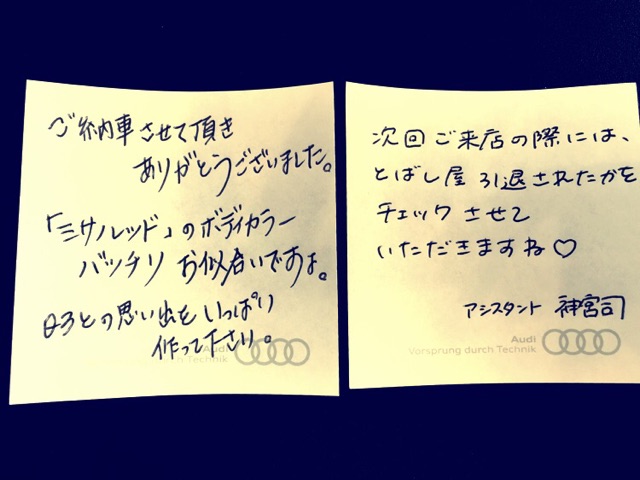 ご納車させて頂き
ありがとうございました。
「ミサノレッド」のボディカラー
バッチリ お似合いですよ。
Q3との思い出をいっぱい
作って下さい。
Audi
Vorsprung durch Technik
次回ご来店の際には、
とばし屋 引退されたかを
チェックさせて
いただきますね♡
アシスタント 神宮司
Audi
Vorsprung durch Technik